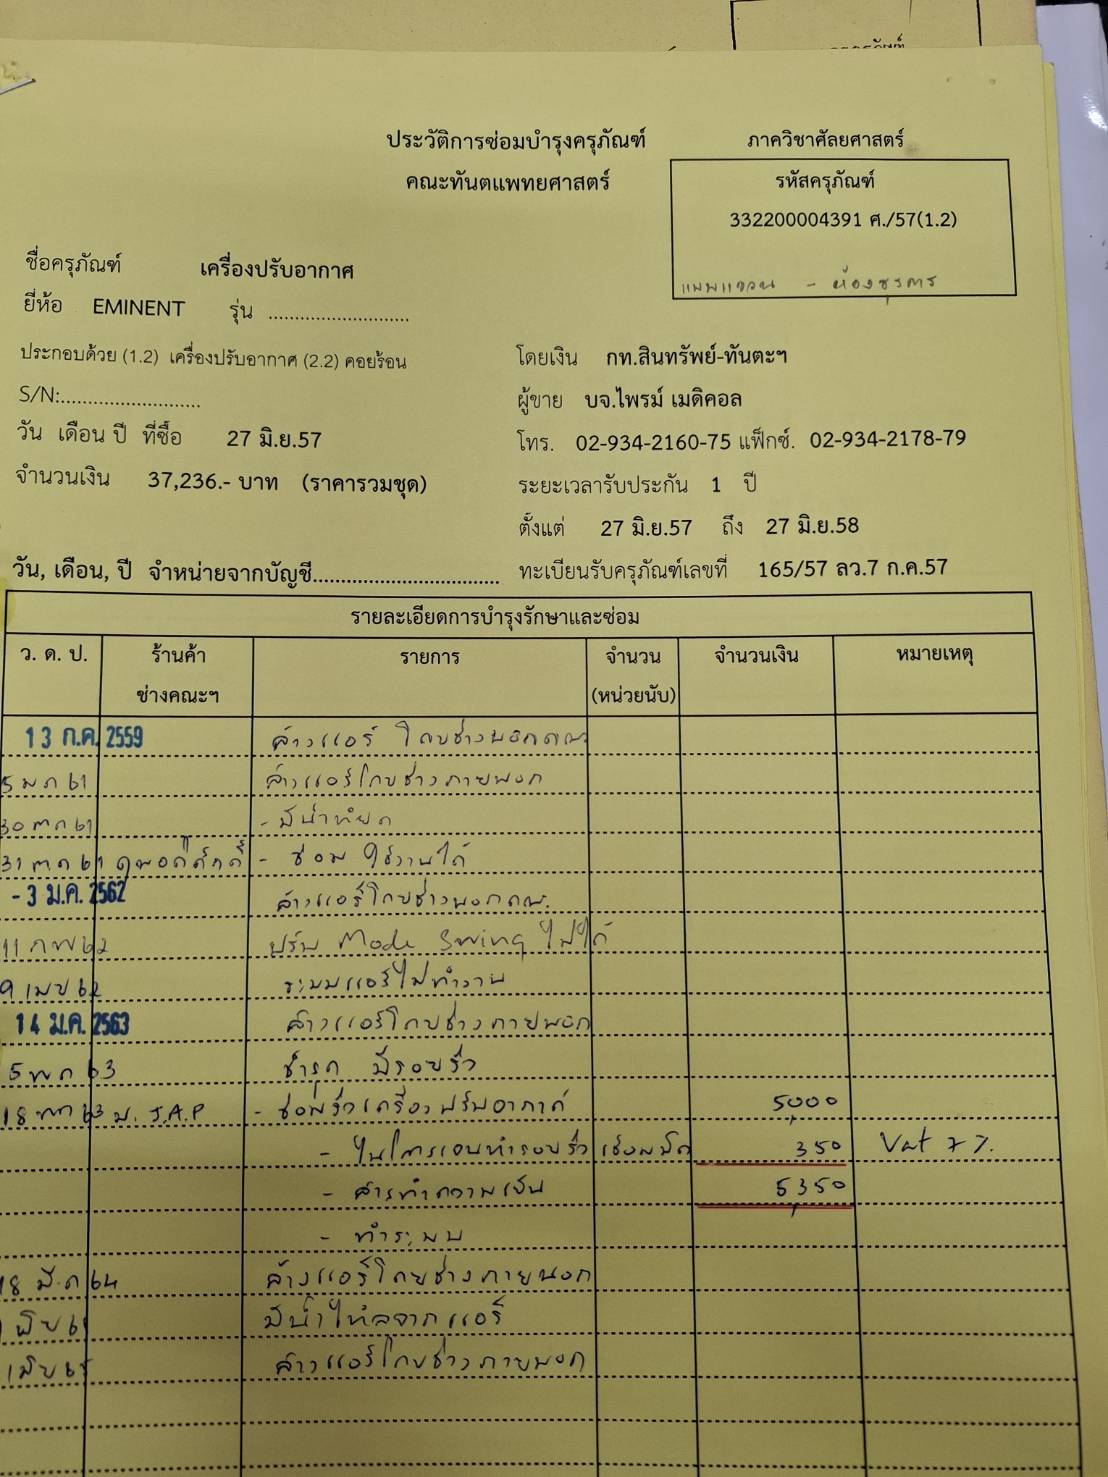 ประวัติการซ่อมบำรุงครุภัณฑ์
คณะทันตแพทยศาสตร์
ภาควิชาศัลยศาสตร์
รหัสครุภัณฑ์
332200004391 ศ./57(1.2)
- ห้องธุรการ
ชื่อครุภัณฑ์ เครื่องปรับอากาศ
ยี่ห้อ EMINENT รุ่น ...........................
ประกอบด้วย (1.2) เครื่องปรับอากาศ (2.2) คอยร้อน
S/N:..........................
วัน เดือน ปี ที่ซื้อ 27 มิ.ย.57
จำนวนเงิน 37,236.- บาท (ราคารวมชุด)
โดยเงิน กท.สินทรัพย์-ทันตะฯ
ผู้ขาย บจ.ไพรม์ เมดิคอล
โทร. 02-934-2160-75 แฟ็กซ์. 02-934-2178-79
ระยะเวลารับประกัน 1 ปี
ตั้งแต่ 27 มิ.ย.57 ถึง 27 มิ.ย.58
วัน, เดือน, ปี จำหน่ายจากบัญชี.................................. ทะเบียนรับครุภัณฑ์เลขที่ 165/57 ลว.7 ก.ค.57
รายละเอียดการบำรุงรักษาและซ่อม
ว. ด. ป. ร้านค้า ช่างคณะฯ รายการ จำนวน (หน่วยนับ) จำนวนเงิน หมายเหตุ
13 ก.ค. 2559 ล้างแอร์ โดยช่างนอกคณะ
5 มค 61 ล้างแอร์โดยช่างภายนอก
30 ตค 61 - มีน้ำหยด
31 ตค 61 - ซ่อม ใช้งานได้
- 3 ม.ค. 2562 ล้างแอร์โดยช่างนอกคณะ
11 กพ 62 ปรับ Mode Swing ไม่ได้
9 เมย 62 ระบบแอร์ไม่ทำงาน
14 ม.ค. 2563 ล้างแอร์โดยช่างภายนอก
5 พค 63 ชำรุด มีรอยรั่ว
18 63 บ. J.A.P - ซ่อมรั่วเครื่องปรับอากาศ 5,000
350 Vat 7%
- สารทำความเย็น 5,350
- ทำระบบ
18 มี.ค 64 ล้างแอร์โดยช่างภายนอก
มีน้ำไหลจากแอร์
ล้างแอร์โดยช่างภายนอก